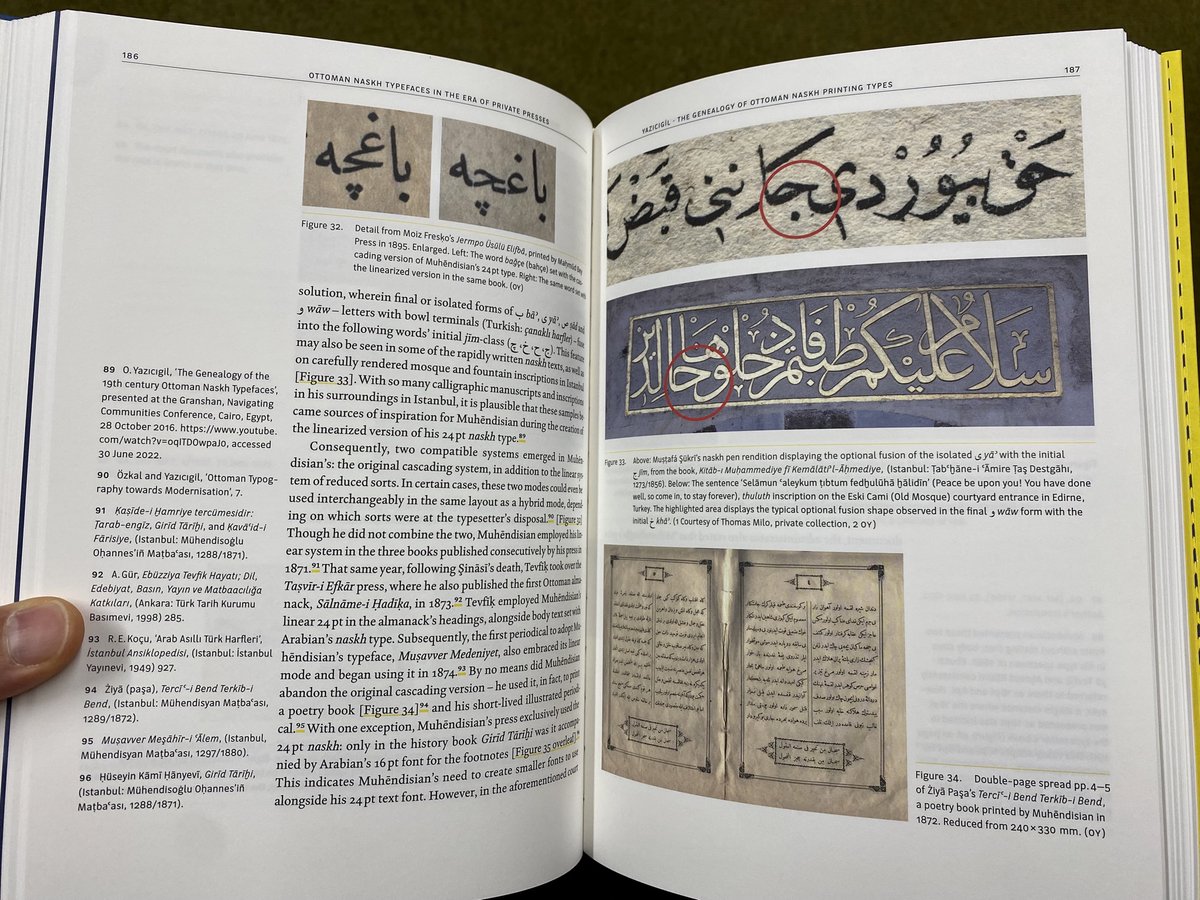 186
OTTOMAN NASKH TYPEFACES IN THE ERA OF PRIVATE PRESSES
باغچه
باغچه
Figure 32. Detail from Moiz Fresko's Jermpo Üsûlü Elifbâ, printed by Maḥmûd Bey
Press in 1895. Enlarged. Left: The word bağçe (bahçe) set with the cas-
cading version of Muhēndisian's 24 pt type. Right: The same word set with
the linearized version in the same book. (OY)
solution, wherein final or isolated forms of ب bāʾ, ى yāʾ, ص ṣād and
و wāw – letters with bowl terminals (Turkish: çanaklı harfler) – fuse
into the following words' initial jīm-class (ج، ح، خ، چ). This feature
may also be seen in some of the rapidly written naskh texts, as well as
on carefully rendered mosque and fountain inscriptions in Istanbul
[Figure 33]. With so many calligraphic manuscripts and inscriptions
in his surroundings in Istanbul, it is plausible that these samples be-
came sources of inspiration for Muhēndisian during the creation of
the linearized version of his 24 pt naskh type.89
Consequently, two compatible systems emerged in Muhēn-
disian's: the original cascading system, in addition to the linear sys-
tem of reduced sorts. In certain cases, these two modes could even be
used interchangeably in the same layout as a hybrid mode, depend-
ing on which sorts were at the typesetter's disposal.90 [Figure 31]
Though he did not combine the two, Muhēndisian employed his lin-
ear system in the three books published consecutively by his press in
1871.91 That same year, following Şinâsi's death, Tevfiḳ took over the
Taṣvîr-i Efkâr press, where he also published the first Ottoman alma-
nack, Sâlnâme-i Ḥadîḳa, in 1873.92 Tevfiḳ employed Muhēndisian's
linear 24 pt in the almanack's headings, alongside body text set with
Arabian's naskh type. Subsequently, the first periodical to adopt Mu-
hēndisian's typeface, Muṣavver Medeniyet, also embraced its linear
mode and began using it in 1874.93 By no means did Muhēndisian
abandon the original cascading version – he used it, in fact, to print
a poetry book [Figure 34]94 and his short-lived illustrated periodi-
cal.95 With one exception, Muhēndisian's press exclusively used the
24 pt naskh: only in the history book Girîd Târîḫi was it accompa-
nied by Arabian's 16 pt font for the footnotes [Figure 35 overleaf].96
This indicates Muhēndisian's need to create smaller fonts to use
alongside his 24 pt text font. However, in the aforementioned court
89 O. Yazıcıgil, 'The Genealogy of the
19th century Ottoman Naskh Typefaces',
presented at the Granshan, Navigating
Communities Conference, Cairo, Egypt,
28 October 2016. https://www.youtube.
com/watch?v=oqITD0wpaJ0, accessed
30 June 2022.
90 Özkal and Yazıcıgil, 'Ottoman Typog-
raphy towards Modernisation', 7.
91 Ḳaṣîde-i Ḥamriye tercümesidir:
Ṭarab-engîz, Girîd Târîḫi, and Ḳavâʿid-i
Fârisiye, (Istanbul: Mühendisoğlu
Oḥannes'iñ Maṭbaʿası, 1288/1871).
92 A. Gür, Ebüzziya Tevfik Hayatı; Dil,
Edebiyat, Basın, Yayın ve Matbaacılığa
Katkıları, (Ankara: Türk Tarih Kurumu
Basımevi, 1998) 285.
93 R. E. Koçu, 'Arab Asıllı Türk Harfleri',
İstanbul Ansiklopedisi, (Istanbul: İstanbul
Yayınevi, 1949) 927.
94 Żiyâ (paşa), Tercîʿ-i Bend Terkîb-i
Bend, (Istanbul: Mühendisyan Maṭbaʿası,
1289/1872).
95 Muṣavver Meşâhîr-i ʿÂlem, (Istanbul,
Mühendisyan Maṭbaʿası, 1297/1880).
96 Ḥüseyin Kâmî Ḥanyevî, Girîd Târîḫi,
(Istanbul: Mühendisoğlu Oḥannes'iñ
Maṭbaʿası, 1288/1871).
187
YAZICIGİL - THE GENEALOGY OF OTTOMAN NASKH PRINTING TYPES
حق بیوردی جاننی قبض
سلام عليكم طبتم فادخلوها خالدين
Figure 33. Above: Muṣṭafá Şükrî's naskh pen rendition displaying the optional fusion of the isolated ى yāʾ with the initial
ج jīm, from the book, Kitâb-ı Muḥammediye fî Kemâlâtiʾl-Aḥmediye, (Istanbul: Ṭabʿḫâne-i ʿÂmire Ṭaş Destgâhı,
1273/1856). Below: The sentence 'Selāmun ʿaleykum ṭibtum fedḫulūhā ḫālidīn' (Peace be upon you! You have done
well, so come in, to stay forever), thuluth inscription on the Eski Cami (Old Mosque) courtyard entrance in Edirne,
Turkey. The highlighted area displays the typical optional fusion shape observed in the final و wāw form with the
initial خ khāʾ. (1 Courtesy of Thomas Milo, private collection, 2 OY)
Figure 34. Double-page spread pp. 4–5
of Żiyâ Paşa's Tercîʿ-i Bend Terkîb-i Bend,
a poetry book printed by Muhēndisian in
1872. Reduced from 240 × 330 mm. (OY)